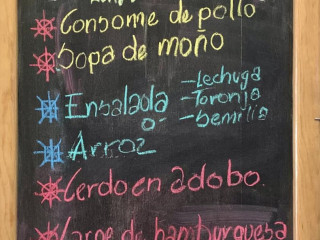 Consome de pollo
Sopa de moño
Ensalada
-Lechuga
-Toronja
-Semilla
o
Arroz
Cerdo en adobo
Carne de hamburguesa